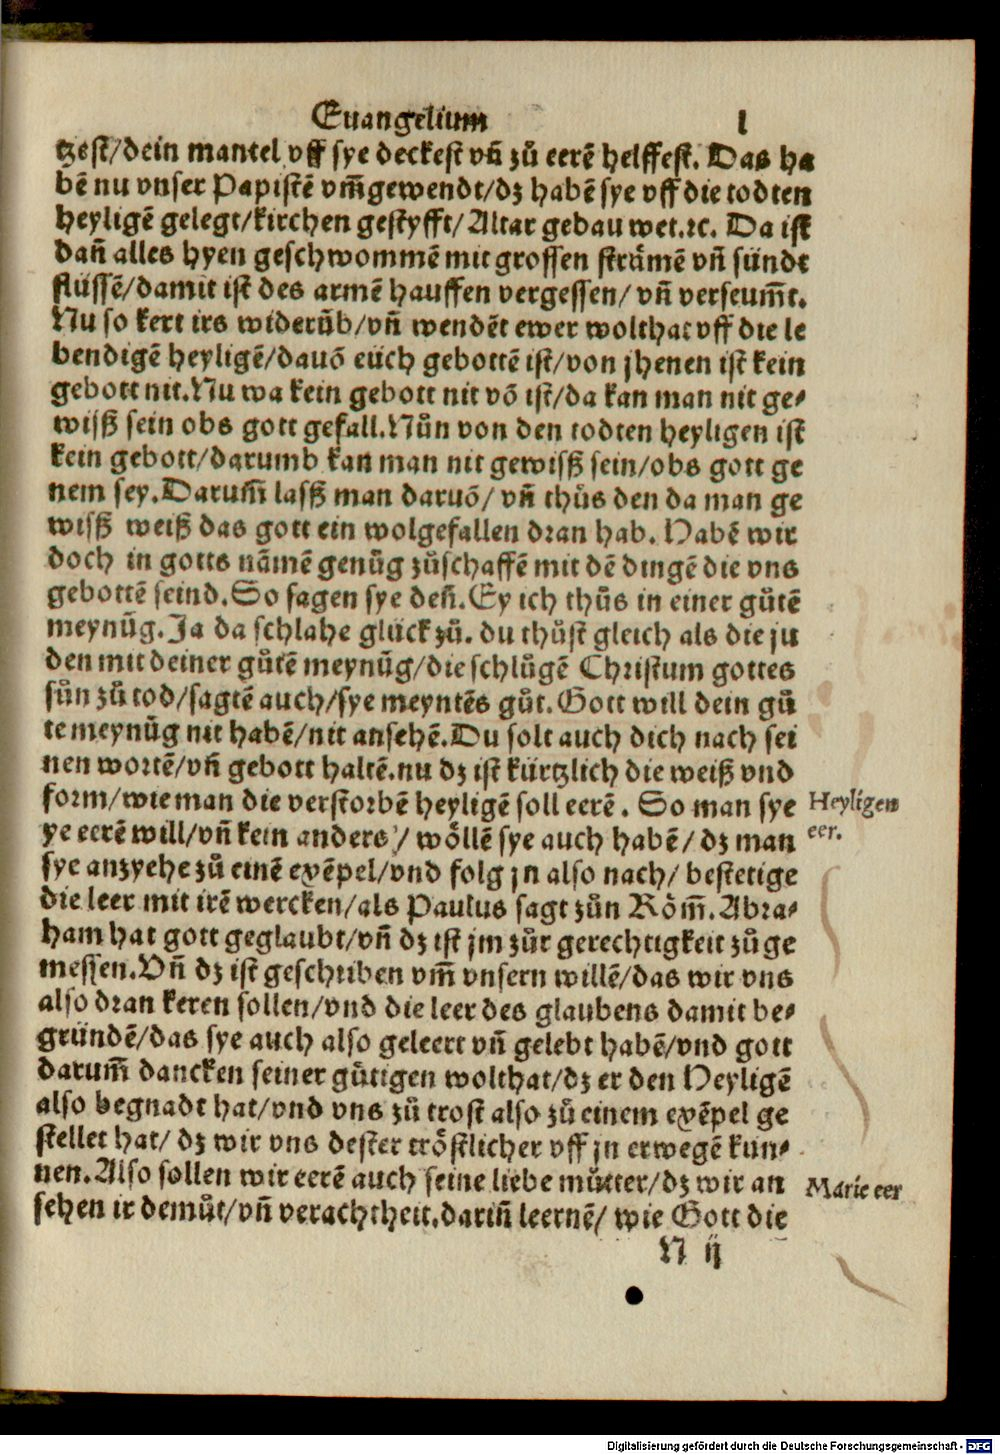 Euangelium l
tzest/dein mantel vff sye deckest vñ zů eerē helffest. Das ha
bē nu vnser Papistē vm̃gewendt/dz habē sye vff die todten
heyligē gelegt/kirchen gestyfft/Altar gebauwet.ꝛc. Da ist
dañ alles hyen geschwommē mit grossen strämē vñ sündt
flüssē/damit ist des armē hauffen vergessen/vñ verseum̃t.
Nu so kert irs widerūb/vñ wendēt ewer wolthat vff die le
bendigē heyligē/dauō eüch gebottē ist/von jhenen ist kein
gebott nit.Nu wa kein gebott nit vō ist/da kan man nit ge⸗
wissz sein obs gott gefall.Nůn von den todten heyligen ist
kein gebott/darumb kan man nit gewissz sein/obs gott ge
nem sey.Darum̃ lassz man daruō/vñ thůs den da man ge
wissz weiß das gott ein wolgefallen dran hab. Habē wir
doch in gotts nāmē genūg zůschaffē mit dē dingē die vns
gebottē seind.So sagen sye deñ.Ey ich thůs in einer gůtē
meynūg.Ja da schlahe glück zů. du thůst gleich als die ju
den mit deiner gůtē meynūg/die schlůgē Christum gottes
sůn zů tod/sagtē auch/sye meyntēs gůt.Gott will dein gů
te meynūg nit habē/nit ansehē.Du solt auch dich nach sei
nen wortē/vñ gebott haltē.nu dz ist kürtzlich die weiß vnd
form/wie man die verstorbē heyligē soll eerē. So man sye
ye eerē will/vñ kein anders/wöllē sye auch habē/dz man
sye anzyehe zů einē exēpel/vnd folg jn also nach/bestetige
die leer mit irē wercken/als Paulus sagt zůn Röm̃.Abra⸗
ham hat gott geglaubt/vñ dz ist jm zůr gerechtigkeit zůge
messen.Vñ dz ist geschriben vm̃ vnsern willē/das wir vns
also dran keren sollen/vnd die leer des glaubens damit be⸗
gründē/das sye auch also geleert vñ gelebt habē/vnd gott
darum̃ dancken seiner gůtigen wolthat/dz er den Heyligē
also begnadt hat/vnd vns zů trost also zů einem exēpel ge
stellet hat/dz wir vns dester tröstlicher vff jn erwegē kün⸗
nen.Also sollen wir eerē auch seine liebe můtter/dz wir an
sehen ir demůt/vñ verachtheit.dariñ leernē/wie Gott die
Heyligen
eer.
Marie eer
N ij
Digitalisierung gefördert durch die Deutsche Forschungsgemeinschaft - DFG